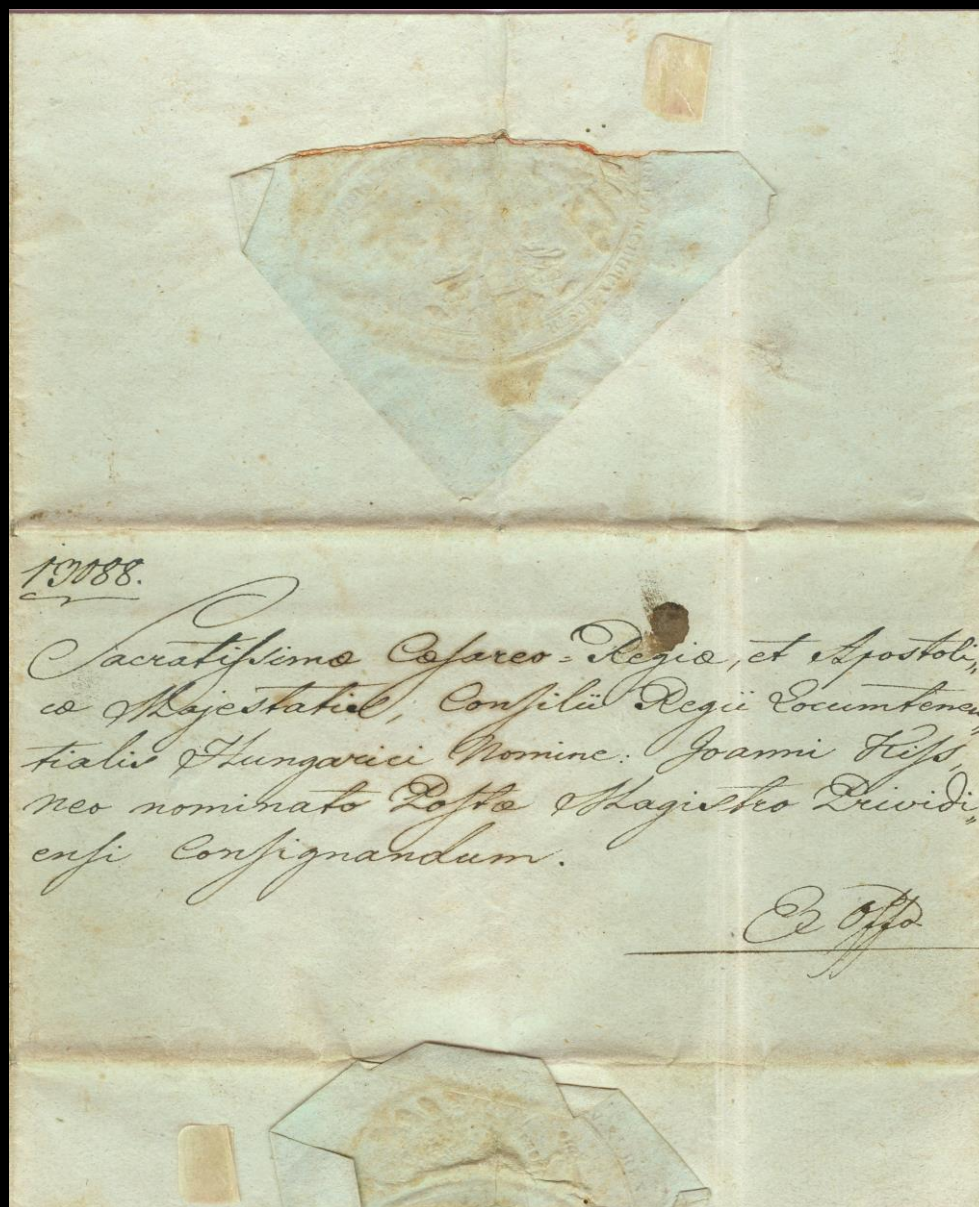 13088.
Sacratissimæ Cæsareo=Regiæ, et Apostoli„
cæ Majestatis, Consilii Regii Locumtenen„
tialis Hungarici Nomine: Joanni Kiss,
neo nominato Postæ Magistro Prividi„
ensi Consignandum.
Ex Offo